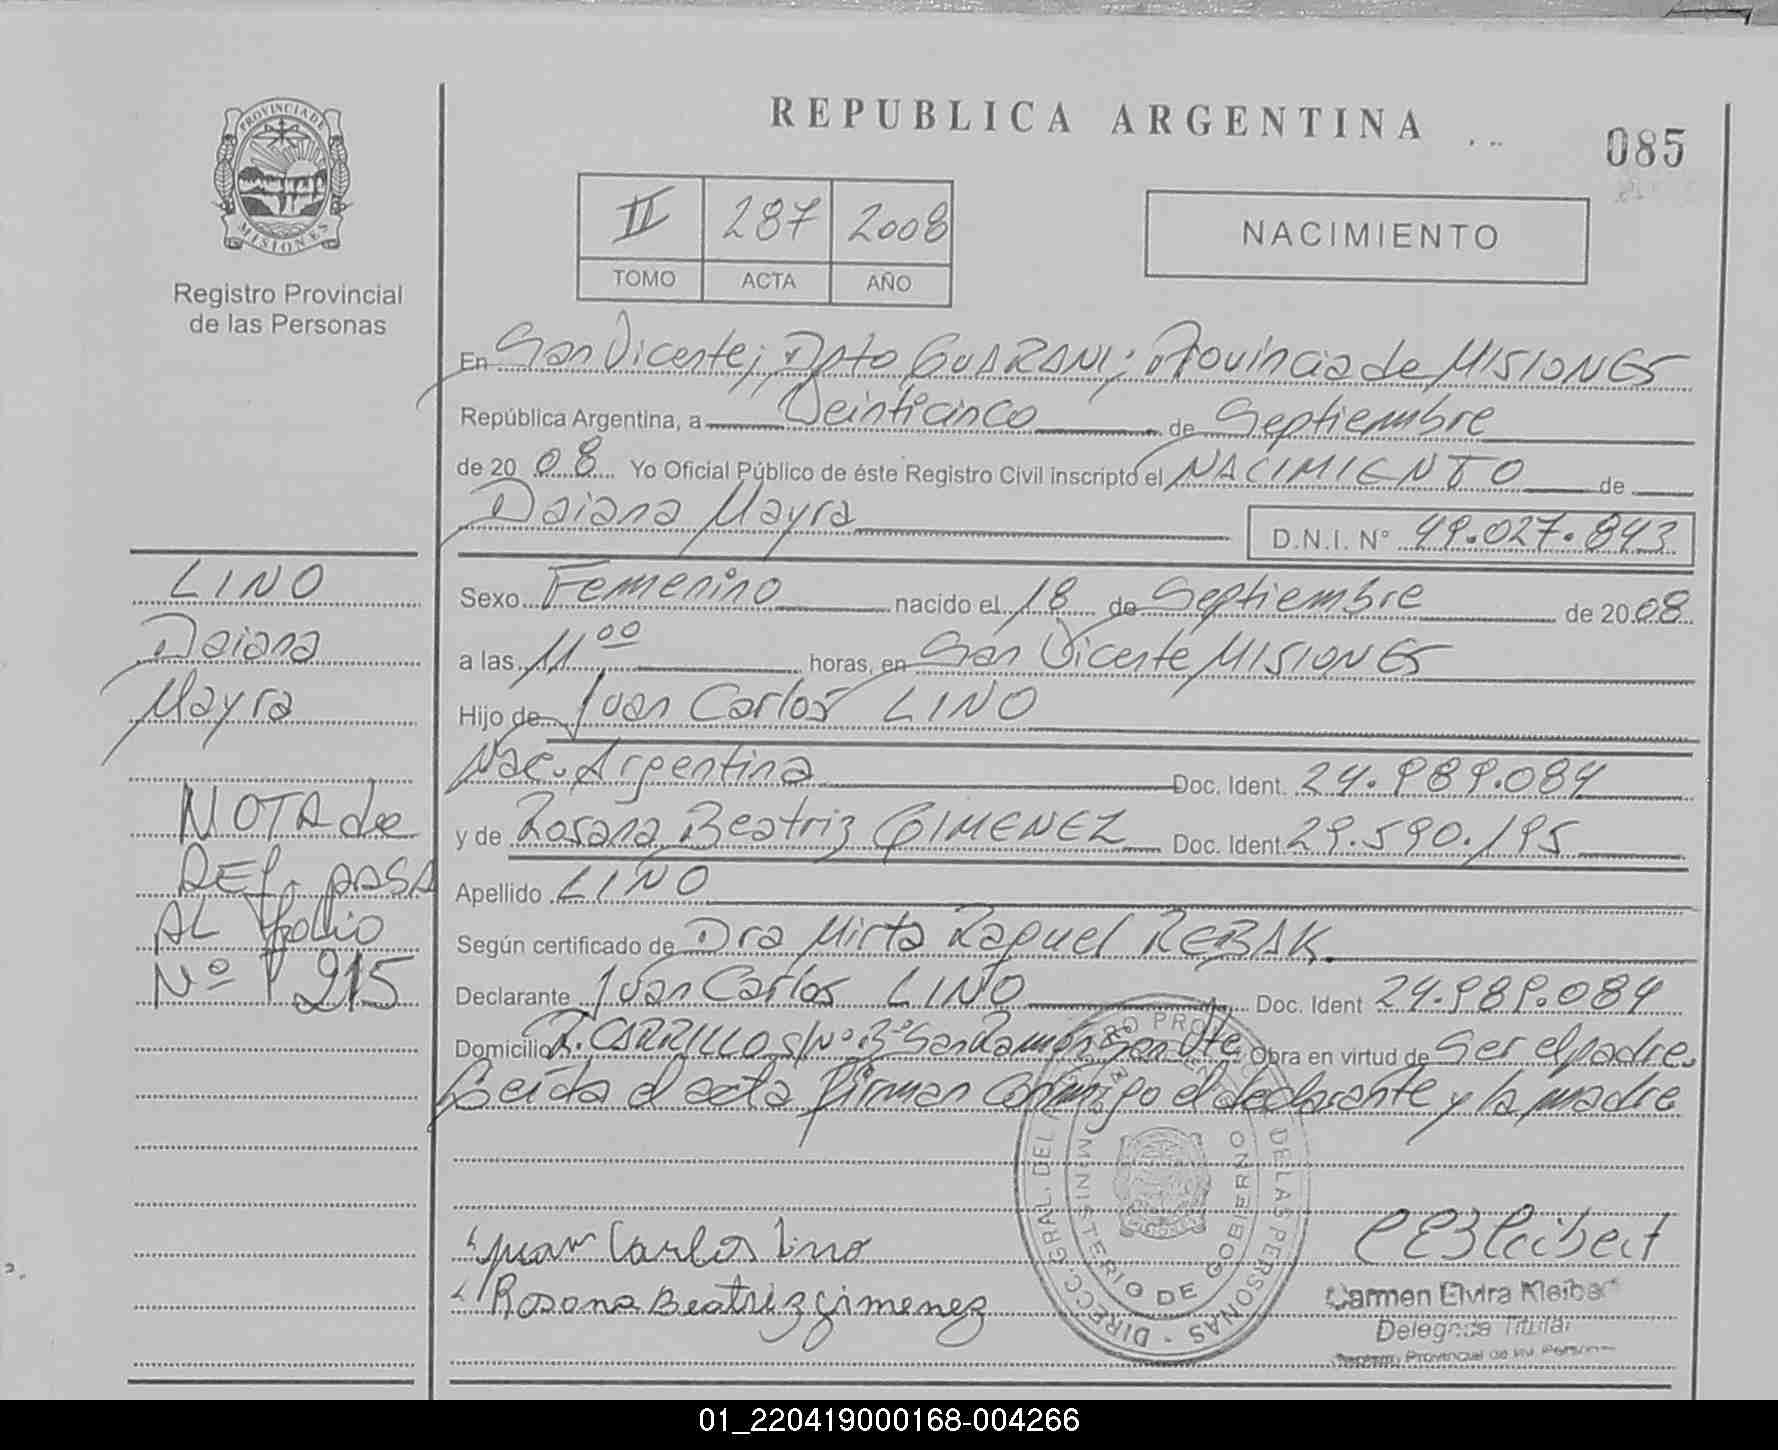 REPUBLICA ARGENTINA
085
PROVINCIA DE
MISIONES
Registro Provincial
de las Personas
II 287 2008
TOMO ACTA AÑO
NACIMIENTO
En San Vicente; Dpto GUARANI; Provincia de MISIONES
República Argentina, a Veinticinco de Septiembre
de 20 08 Yo Oficial Público de éste Registro Civil inscripto el NACIMIENTO de
Daiana Mayra D.N.I. N° 49.027.843
Sexo Femenino nacido el 18 de Septiembre de 20 08
a las 11 00 horas, en San Vicente MISIONES
Hijo de Juan Carlos LINO
Nac. Argentina Doc. Ident. 24.989.084
y de Rosana Beatriz GIMENEZ Doc. Ident. 29.590.195
Apellido LINO
Según certificado de Dra Mirta Raquel REBAK.
Declarante Juan Carlos LINO Doc. Ident 24.989.084
Domicilio R. CARRILLO S/Nº Bº San Ramón San Vte. Obra en virtud de Ser el padre.
Leída el acta firman conmigo el declarante y la madre
LINO
Daiana
Mayra
NOTA de
REF. PASA
AL Folio
Nº 215
Juan Carlos Lino
Rosana Beatriz Gimenez
DIRECC. GRAL. DEL REGISTRO PROVINCIAL DE LAS PERSONAS
MINISTERIO DE GOBIERNO
Carmen Elvira Kleibert
Delegada Titular
Registro Provincial de las Personas
01_220419000168-004266